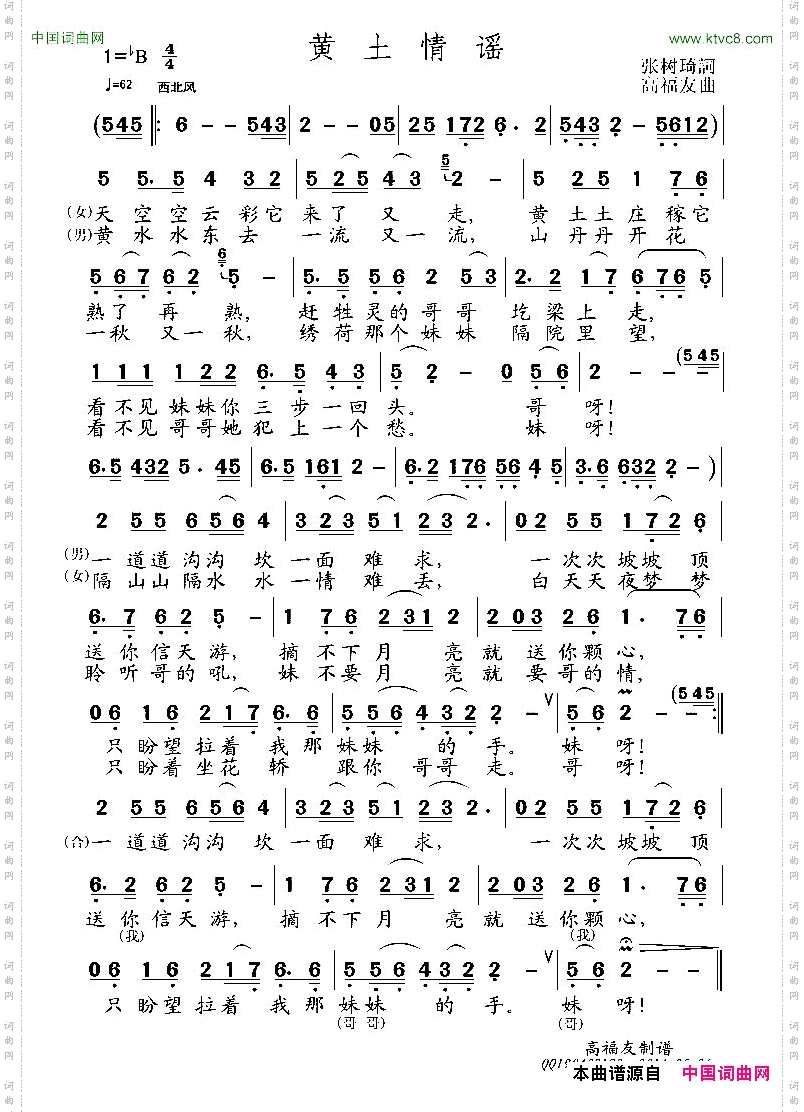 中国词曲网
www.ktvc8.com
黄土情谣
1=♭B 4/4
♩=62 西北风
张树琦詞
高福友曲
(545 ‖: 6 - - 543 | 2 - - 05 | 25 172 6. 2 | 543 2 - 5612 )
5 5. 5 4 3 2 | 5 25 43 5 2 - | 5 25 1 76
(女)天空空云彩它来了又走,黄土土庄稼它
(男)黄水水东去一流又一流,山丹丹开花
5 67 62 6 5 - | 5. 5 56 2 53 | 2. 2 17 6 76 5
熟了再熟,赶牲灵的哥哥圪梁上走,
一秋又一秋,绣荷那个妹妹隔院里望,
1 1 1 1 2 2 6. 5 4 3 | 5 2 - 0 56 | 2 - - (545
看不见妹妹你三步一回头。哥呀!
看不见哥哥她犯上一个愁。妹呀!
6.5 432 5. 45 | 6.5 161 2 - | 6.2 176 56 4 5 | 3.6 632 2 - )
2 55 656 4 | 3 23 51 23 2. | 02 55 172 6
(男)一道道沟沟坎一面难求,一次次坡坡顶
(女)隔山山隔水水一情难丢,白天天夜梦梦
6. 7 62 5 - | 1 76 2 231 | 2 03 26 1. 76
送你信天游,摘不下月亮就送你颗心,
聆听哥的吼,妹不要月亮就要哥的情,
06 16 217 6. 6 | 556 432 2 - ∨ | 56 2 - (545 :‖
只盼望拉着我那妹妹的手。妹呀!
只盼着坐花轿跟你哥哥走。哥呀!
2 55 656 4 | 3 23 51 23 2. | 02 55 172 6
(合)一道道沟沟坎一面难求,一次次坡坡顶
6. 2 62 5 - | 1 76 2 231 | 2 03 26 1. 76
送你信天游,摘不下月亮就送你颗心,
(我) (我)
06 16 217 6. 6 | 556 432 2 - ∨ | 56 2 - - ‖
只盼望拉着我那妹妹的手。妹呀!
(哥哥) (哥)
高福友制谱
本曲谱源自 中国词曲网
词曲网